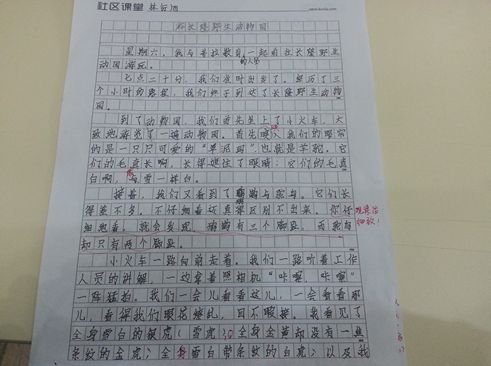 社区课堂
游长隆野生动物园
星期六，我与普拉教育一起前往长隆野生
的人员
动物园游玩。
七点二十分，我们准时出发了。经历了三
个小时的路程，我们终于到达了长隆野生动物
园。
到了动物园，我们首先坐上了小火车，大
致地游览了一遍动物园。首先映入我们的眼帘
的是一只只可爱的“草泥马”，也就是羊驼。它
们的毛真长啊，长得遮住了眼睛；它们的毛真
白啊，与雪一样白。
接着，我们又看到了鸸鹋与鸵鸟。它们长
得差不多，不仔细看还真得区别不出来。你仔
观察得
细地看，就会发现，鸸鹋有三个脚趾，而鸵鸟
细致！
却只有两个脚趾。
小火车一路向前走着。我们一路听着工作
人员的讲解，一边拿着照相机“咔嚓，咔嚓”
一阵猛拍。我们一会儿看看这儿，一会看看那
儿，看得我们眼花缭乱，目不暇接。我看见了
全身雪白的银虎（雪虎）；全身金黄却没有一些
条纹的金虎；全身雪白带条纹的白虎；以及我